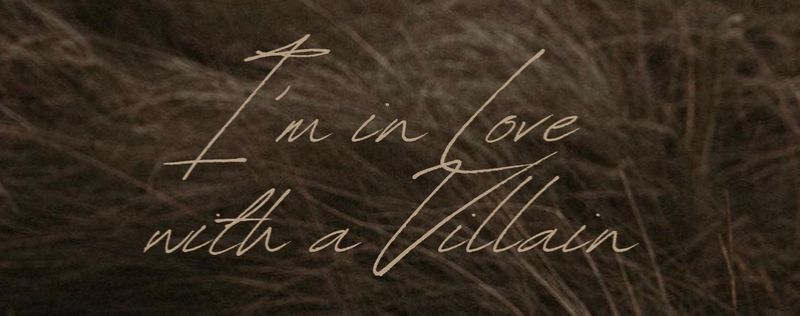 I'm in Love
with a Villain